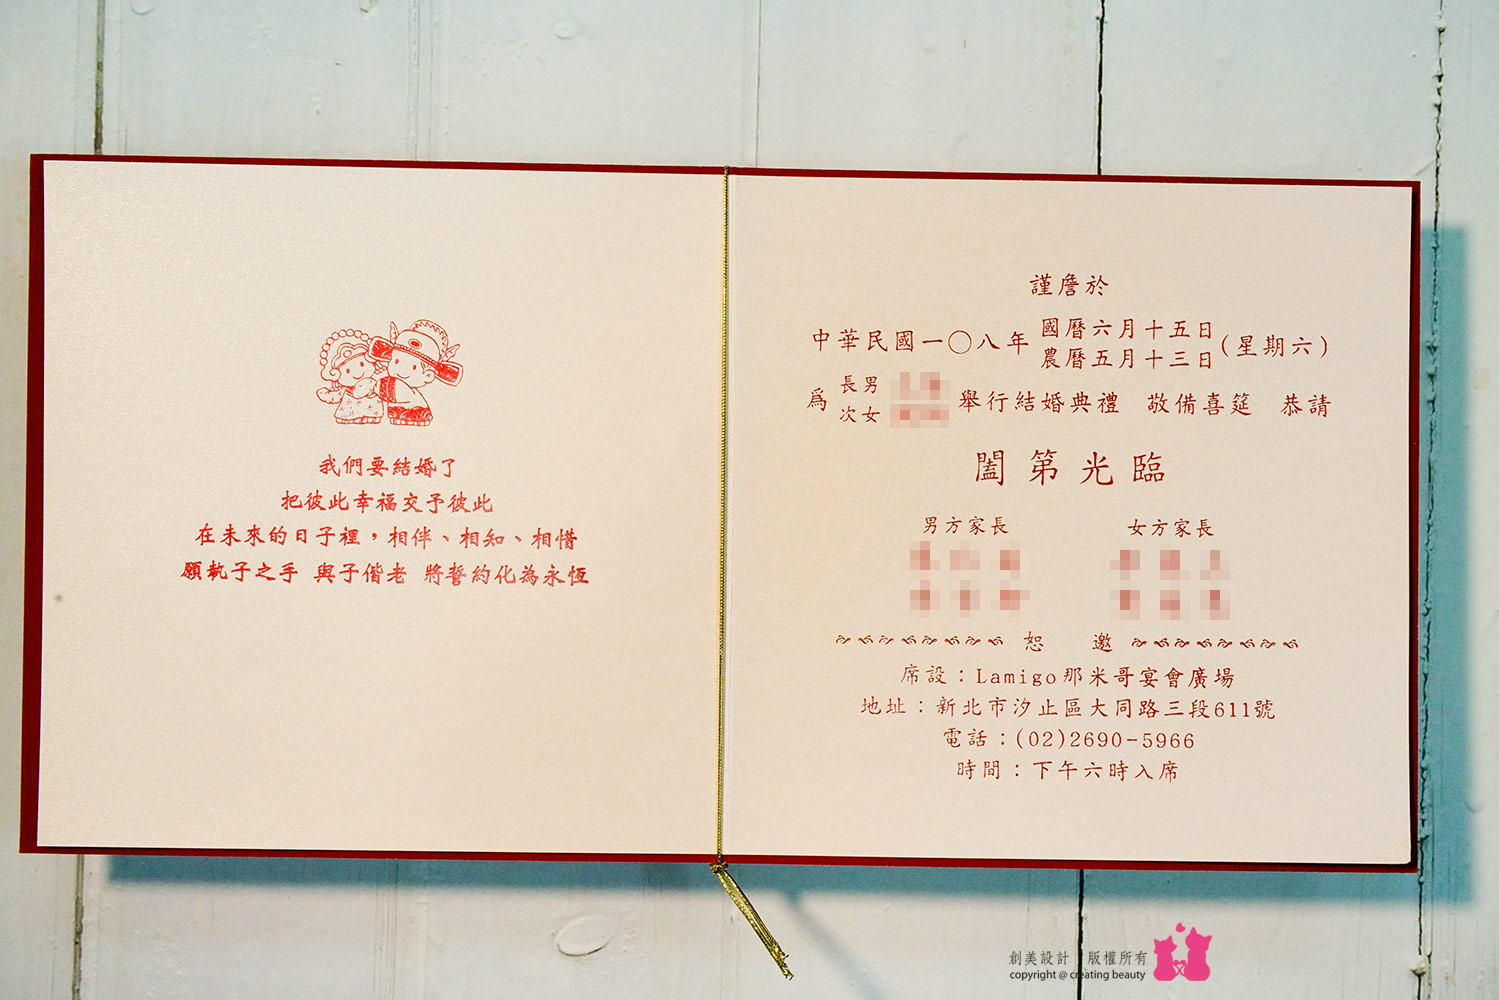 我們要結婚了
把彼此幸福交予彼此
在未來的日子裡，相伴、相知、相惜
願執子之手 與子偕老 將誓約化為永恆
謹詹於
中華民國一〇八年 國曆六月十五日 (星期六)
農曆五月十三日
為 長男 舉行結婚典禮 敬備喜筵 恭請
次女
闔第光臨
男方家長 女方家長
恕 邀
席設：Lamigo那米哥宴會廣場
地址：新北市汐止區大同路三段611號
電話：(02)2690-5966
時間：下午六時入席
創美設計 版權所有
copyright @ creating beauty